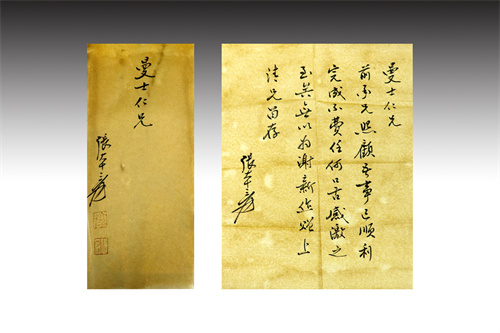 曼士仁兄
張大千
曼士仁兄
前承兄照顧吾事已順利
完成不費任何口舌感激之
至無以为謝新作贈上
請兄留存
張大千